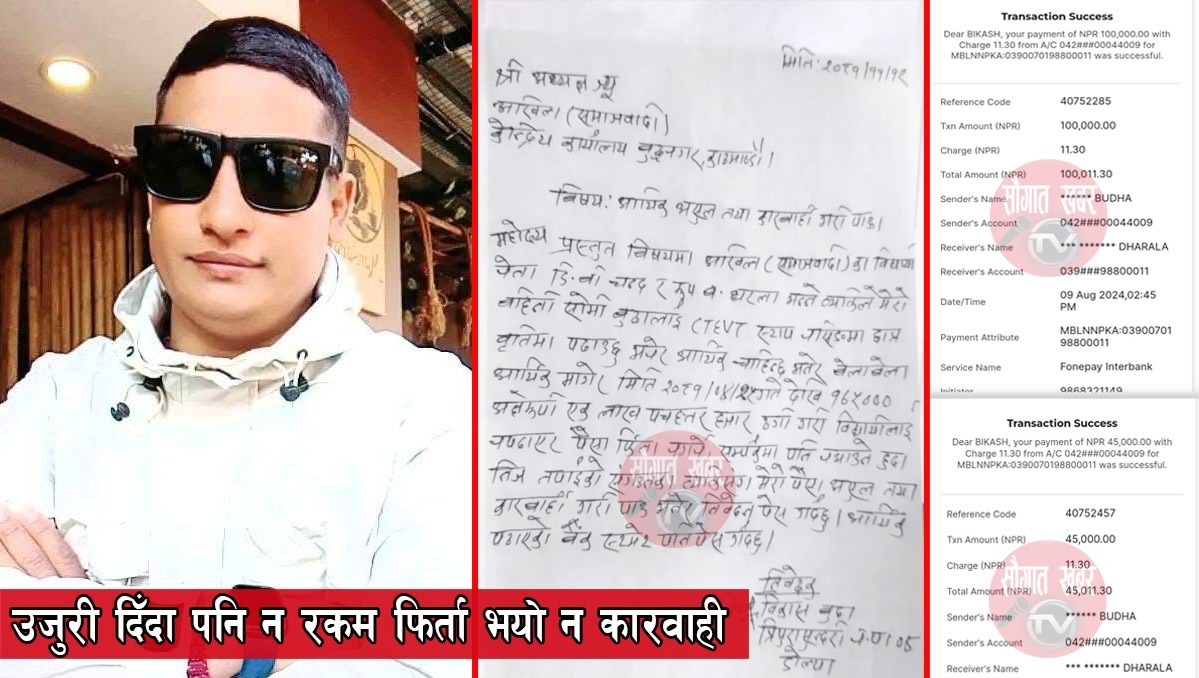 उजुरी दिँदा पनि न रकम फिर्ता भयो न कारवाही
मिति: २०८१/११/१८
श्री अध्यक्ष ज्यू
अखिल (समाजवादी)
केन्द्रिय कार्यालय बुद्धनगर, काठमाण्डौ ।
विषय: आर्थिक असुल तथा कारवाही गरी पाऊँ ।
महोदय प्रस्तुत विषयमा अखिल (समाजवादी) का विद्यार्थी
नेता डि.बी चन्द र रूप ब. धरला भन्ने व्यक्तिले मेरो
बहिनी सोमी बुढालाई CTEVT स्टाफ नर्सिङमा छात्र
वृतिमा पढाउछु भनेर आर्थिक चाहिन्छ भनेर बेलाबेला
आर्थिक मागेर मिति २०८१/०४/२५गते देखि १७५०००
अक्षरूपी एक लाख पचहत्तर हजार ठगी गरी विद्यार्थीलाई
पैसा फिर्ता सम्पर्कमा पनि नआउने हुदा
तपाईको संगठनका मेरो पैसा असुल तथा
कारवाही गरी पाऊँ भनेर निवेदन पेस गर्दछु । आर्थिक
पठाएको बैंक पनि पेस गर्दछु ।
निवेदक
विकास बुढा
त्रिपुरासुन्दरी न.पा ०५
डोल्पा
Transaction Success
Dear BIKASH, your payment of NPR 100,000.00 with
Charge 11.30 from A/C 042###00044009 for
MBLNNPKA:0390070198800011 was successful.
Reference Code 40752285
Txn Amount (NPR) 100,000.00
Charge (NPR) 11.30
Total Amount (NPR) 100,011.30
Sender's Name ****** BUDHA
Sender's Account 042###00044009
Receiver's Name *** ******* DHARALA
Receiver's Account 039###98800011
Date/Time 09 Aug 2024,02:45
PM
Payment Attribute MBLNNPKA:03900701
98800011
Service Name Fonepay Interbank
Initiator 9868321149
Transaction Success
Dear BIKASH, your payment of NPR 45,000.00 with
Charge 11.30 from A/C 042###00044009 for
MBLNNPKA:0390070198800011 was successful.
Reference Code 40752457
Txn Amount (NPR) 45,000.00
Charge (NPR) 11.30
Total Amount (NPR) 45,011.30
Sender's Name ****** BUDHA
Sender's Account 042###00044009
Receiver's Name *** ******* DHARALA
सौगात खबर
TV
सौगात खबर
सौगात खबर
TV